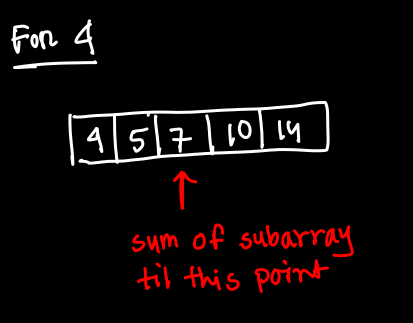 For 4
4 5 7 10 14
sum of subarray
til this point